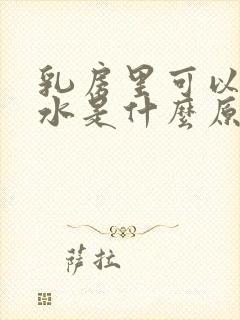 乳房里可以
水是什麼原
萨拉